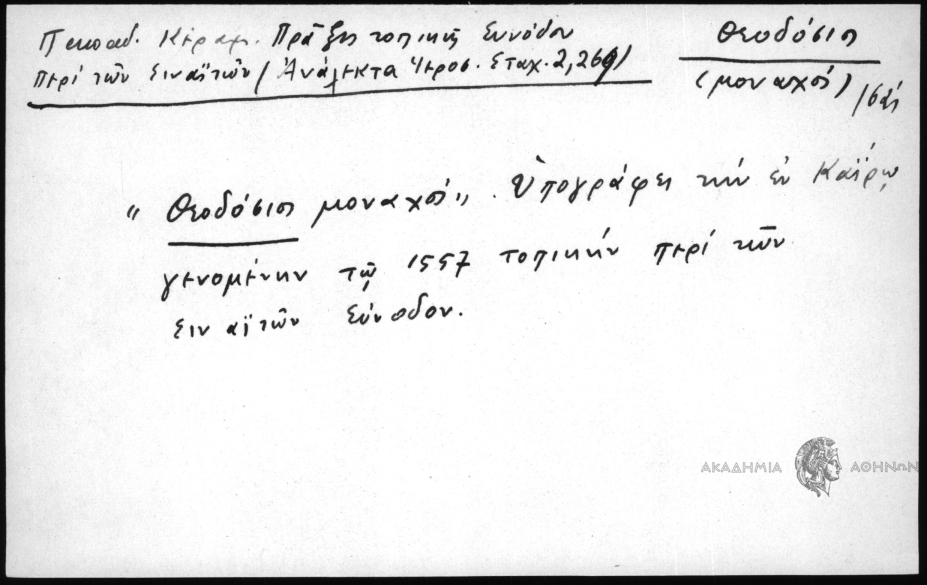 Παπαδ. Κεραμ. Πράξεις τοπικῆς Συνόδου
περί τῶν Σιναϊτῶν (Ἀνάλεκτα Ἱεροσ. Σταχ. 2, 269)
Θεοδόσιος
(μοναχός)
"Θεοδόσιος μοναχός". Ὑπογράφει τήν ἐν Καΐρῳ
γενομένην τῷ 1557 τοπικήν περί τῶν
Σιναϊτῶν Σύνοδον.
ΑΚΑΔΗΜΙΑ ΑΘΗΝΩΝ